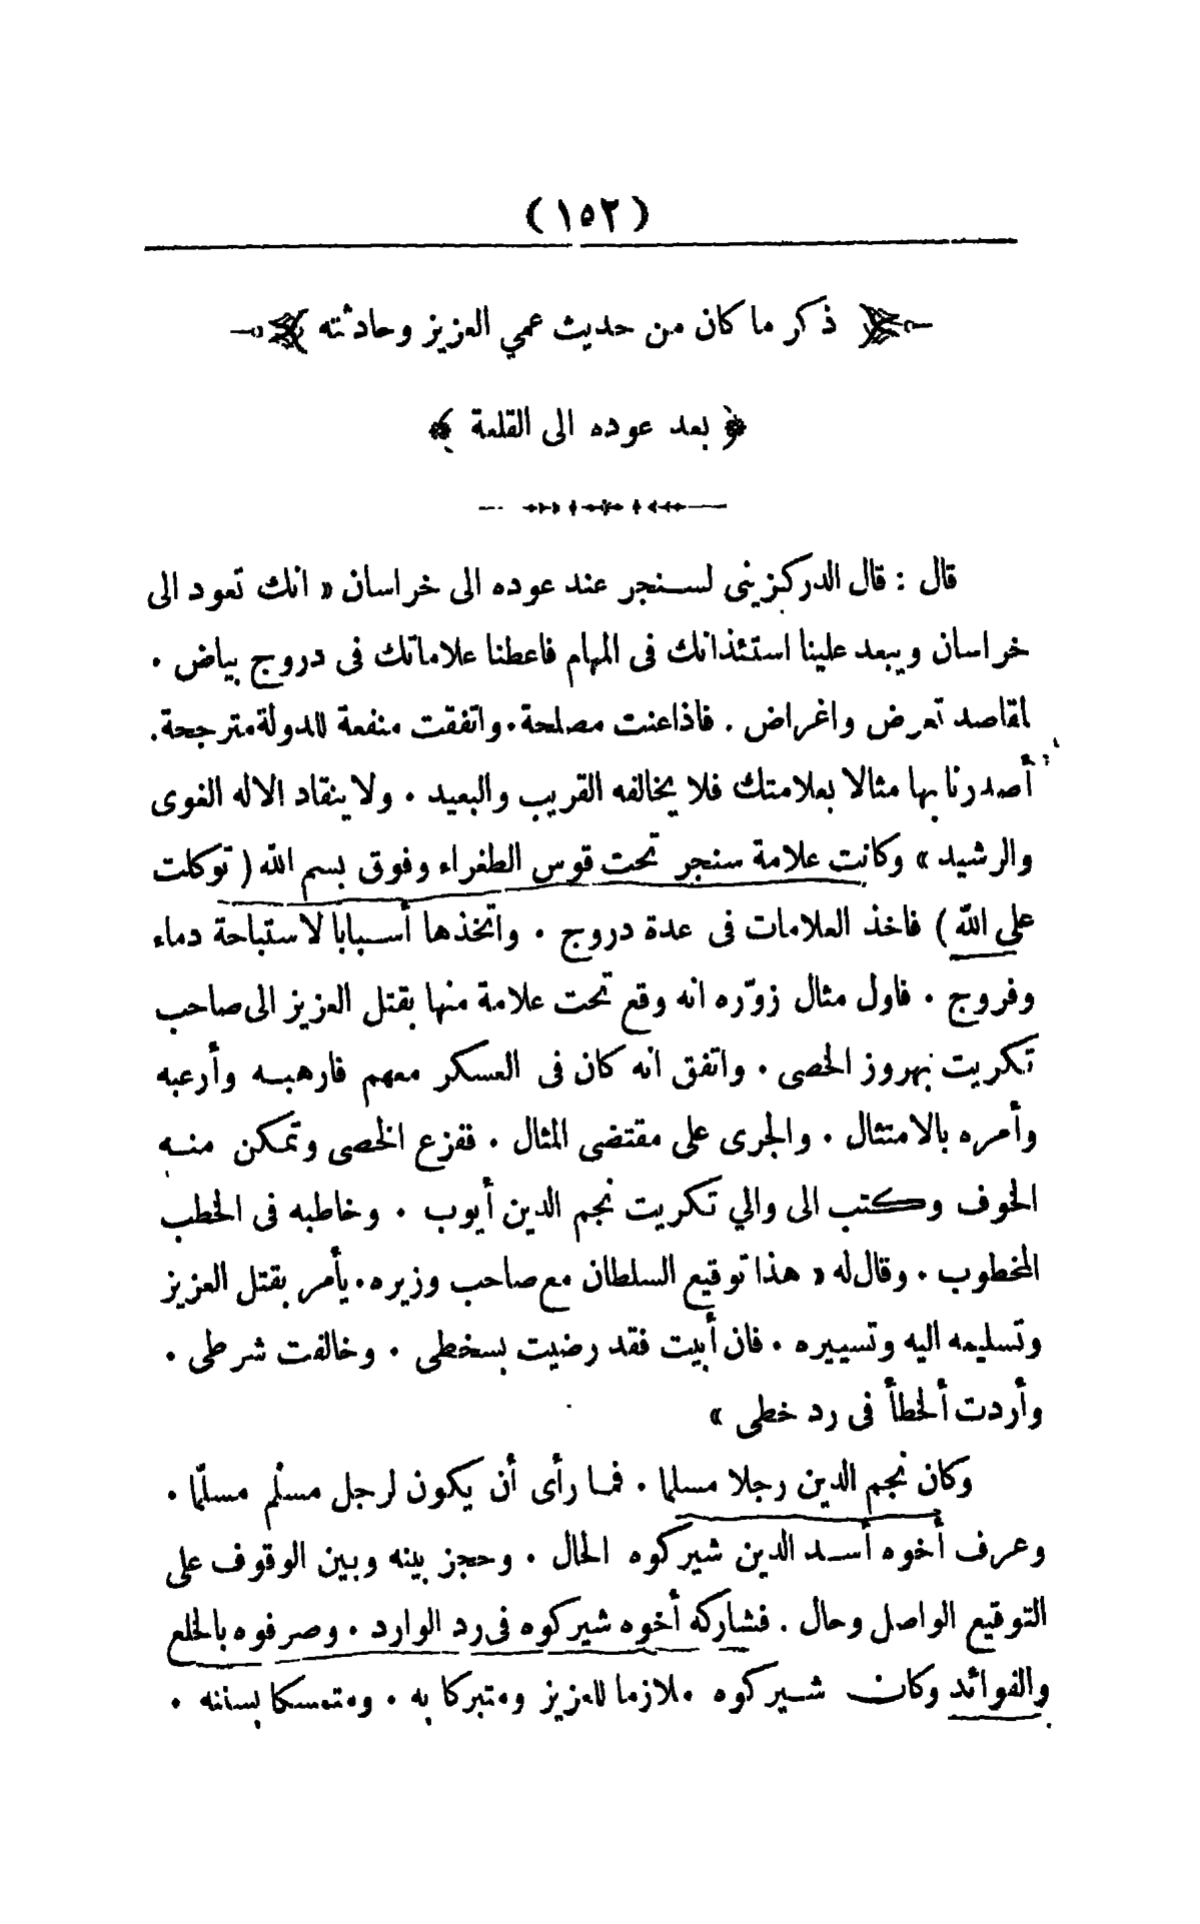 (١٥٢)
ذكر ما كان من حديث عمي العزيز وحادثته
﴿ بعد عوده الى القلعة ﴾
قال : قال الدركزينى لسنجر عند عوده الى خراسان « انك تعود الى
خراسان ويبعد علينا استئذانك فى المهام فاعطنا علاماتك فى دروج بياض .
لمقاصد تعرض واغراض . فاذا عنت مصلحة . واتفقت منفعة للدولة مترجحة .
أصدرنا بها مثالا بعلامتك فلا يخالفه القريب والبعيد . ولا ينقاد الا له الغوى
والرشيد » وكانت علامة سنجر تحت قوس الطغراء وفوق بسم الله ( توكلت
على الله ) فاخذ العلامات فى عدة دروج . واتخذها أسبابا لاستباحة دماء
وفروج . فاول مثال زوّره انه وقع تحت علامة منها بقتل العزيز الى صاحب
تكريت بهروز الخصى . واتفق انه كان فى العسكر معهم فارهبه وأرعبه
وأمره بالامتثال . والجرى على مقتضى المثال . ففزع الخصى وتمكن منه
الخوف وكتب الى والي تكريت نجم الدين أيوب . وخاطبه فى الخطب
المخطوب . وقال له « هذا توقيع السلطان مع صاحب وزيره . يأمر بقتل العزيز
وتسليمه اليه وتسييره . فان أبيت فقد رضيت بسخطى . وخالفت شرطى .
وأردت ألخطأ فى رد خطى »
وكان نجم الدين رجلا مسلما . فما رأى أن يكون لرجل مسلم مسلّما .
وعرف أخوه أسد الدين شيركوه الحال . وحجز بينه وبين الوقوف على
التوقيع الواصل وحال . فشاركه أخوه شيركوه فى رد الوارد . وصرفوه بالخلع
والفوائد وكان شيركوه ملازما للعزيز ومتبركا به . ومتمسكا بسننه .